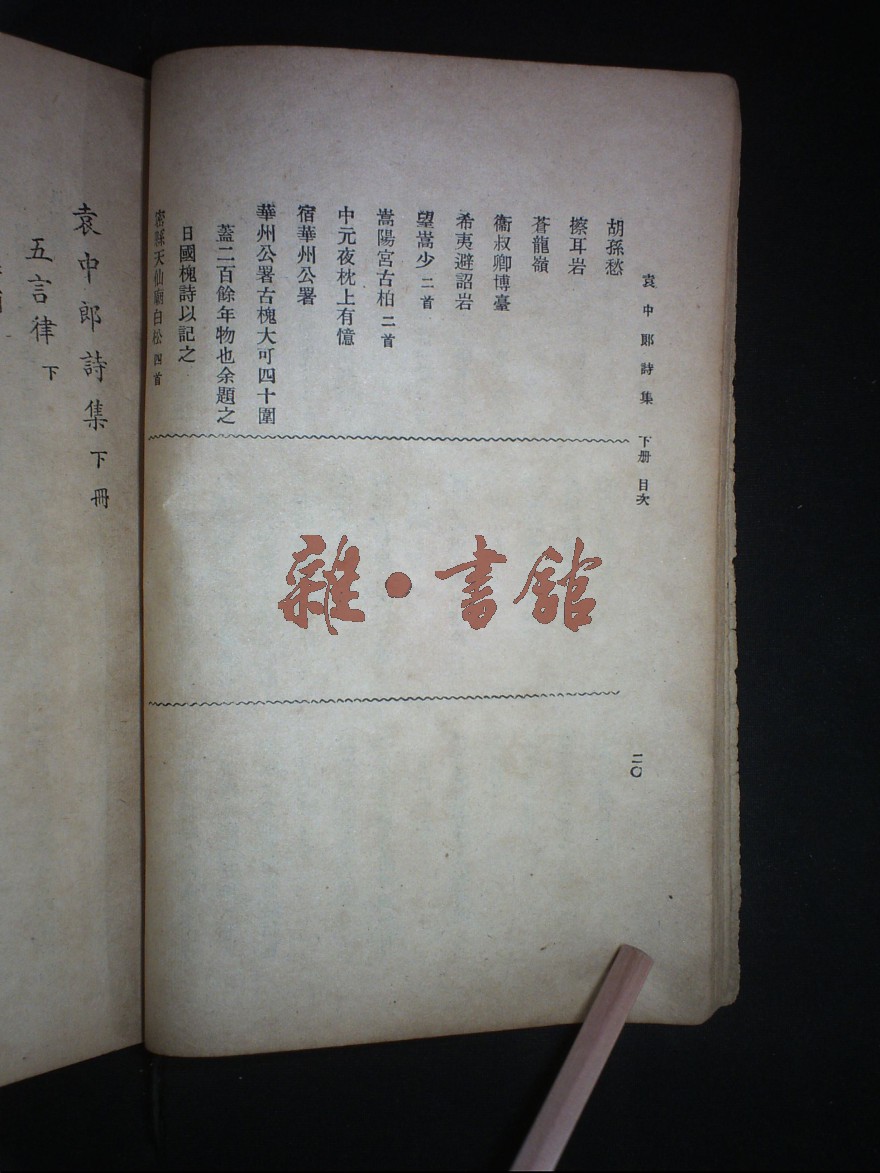 袁中郎詩集 下册 目次
胡孫愁
擦耳岩
蒼龍嶺
衞叔卿博臺
希夷避詔岩
望嵩少 二首
嵩陽宮古柏 二首
中元夜枕上有憶
宿華州公署
華州公署古槐大可四十圍
蓋二百餘年物也余題之
日國槐詩以記之
密縣天仙廟白松 四首
二〇
雜·書館
袁中郎詩集 下冊
五言律 下